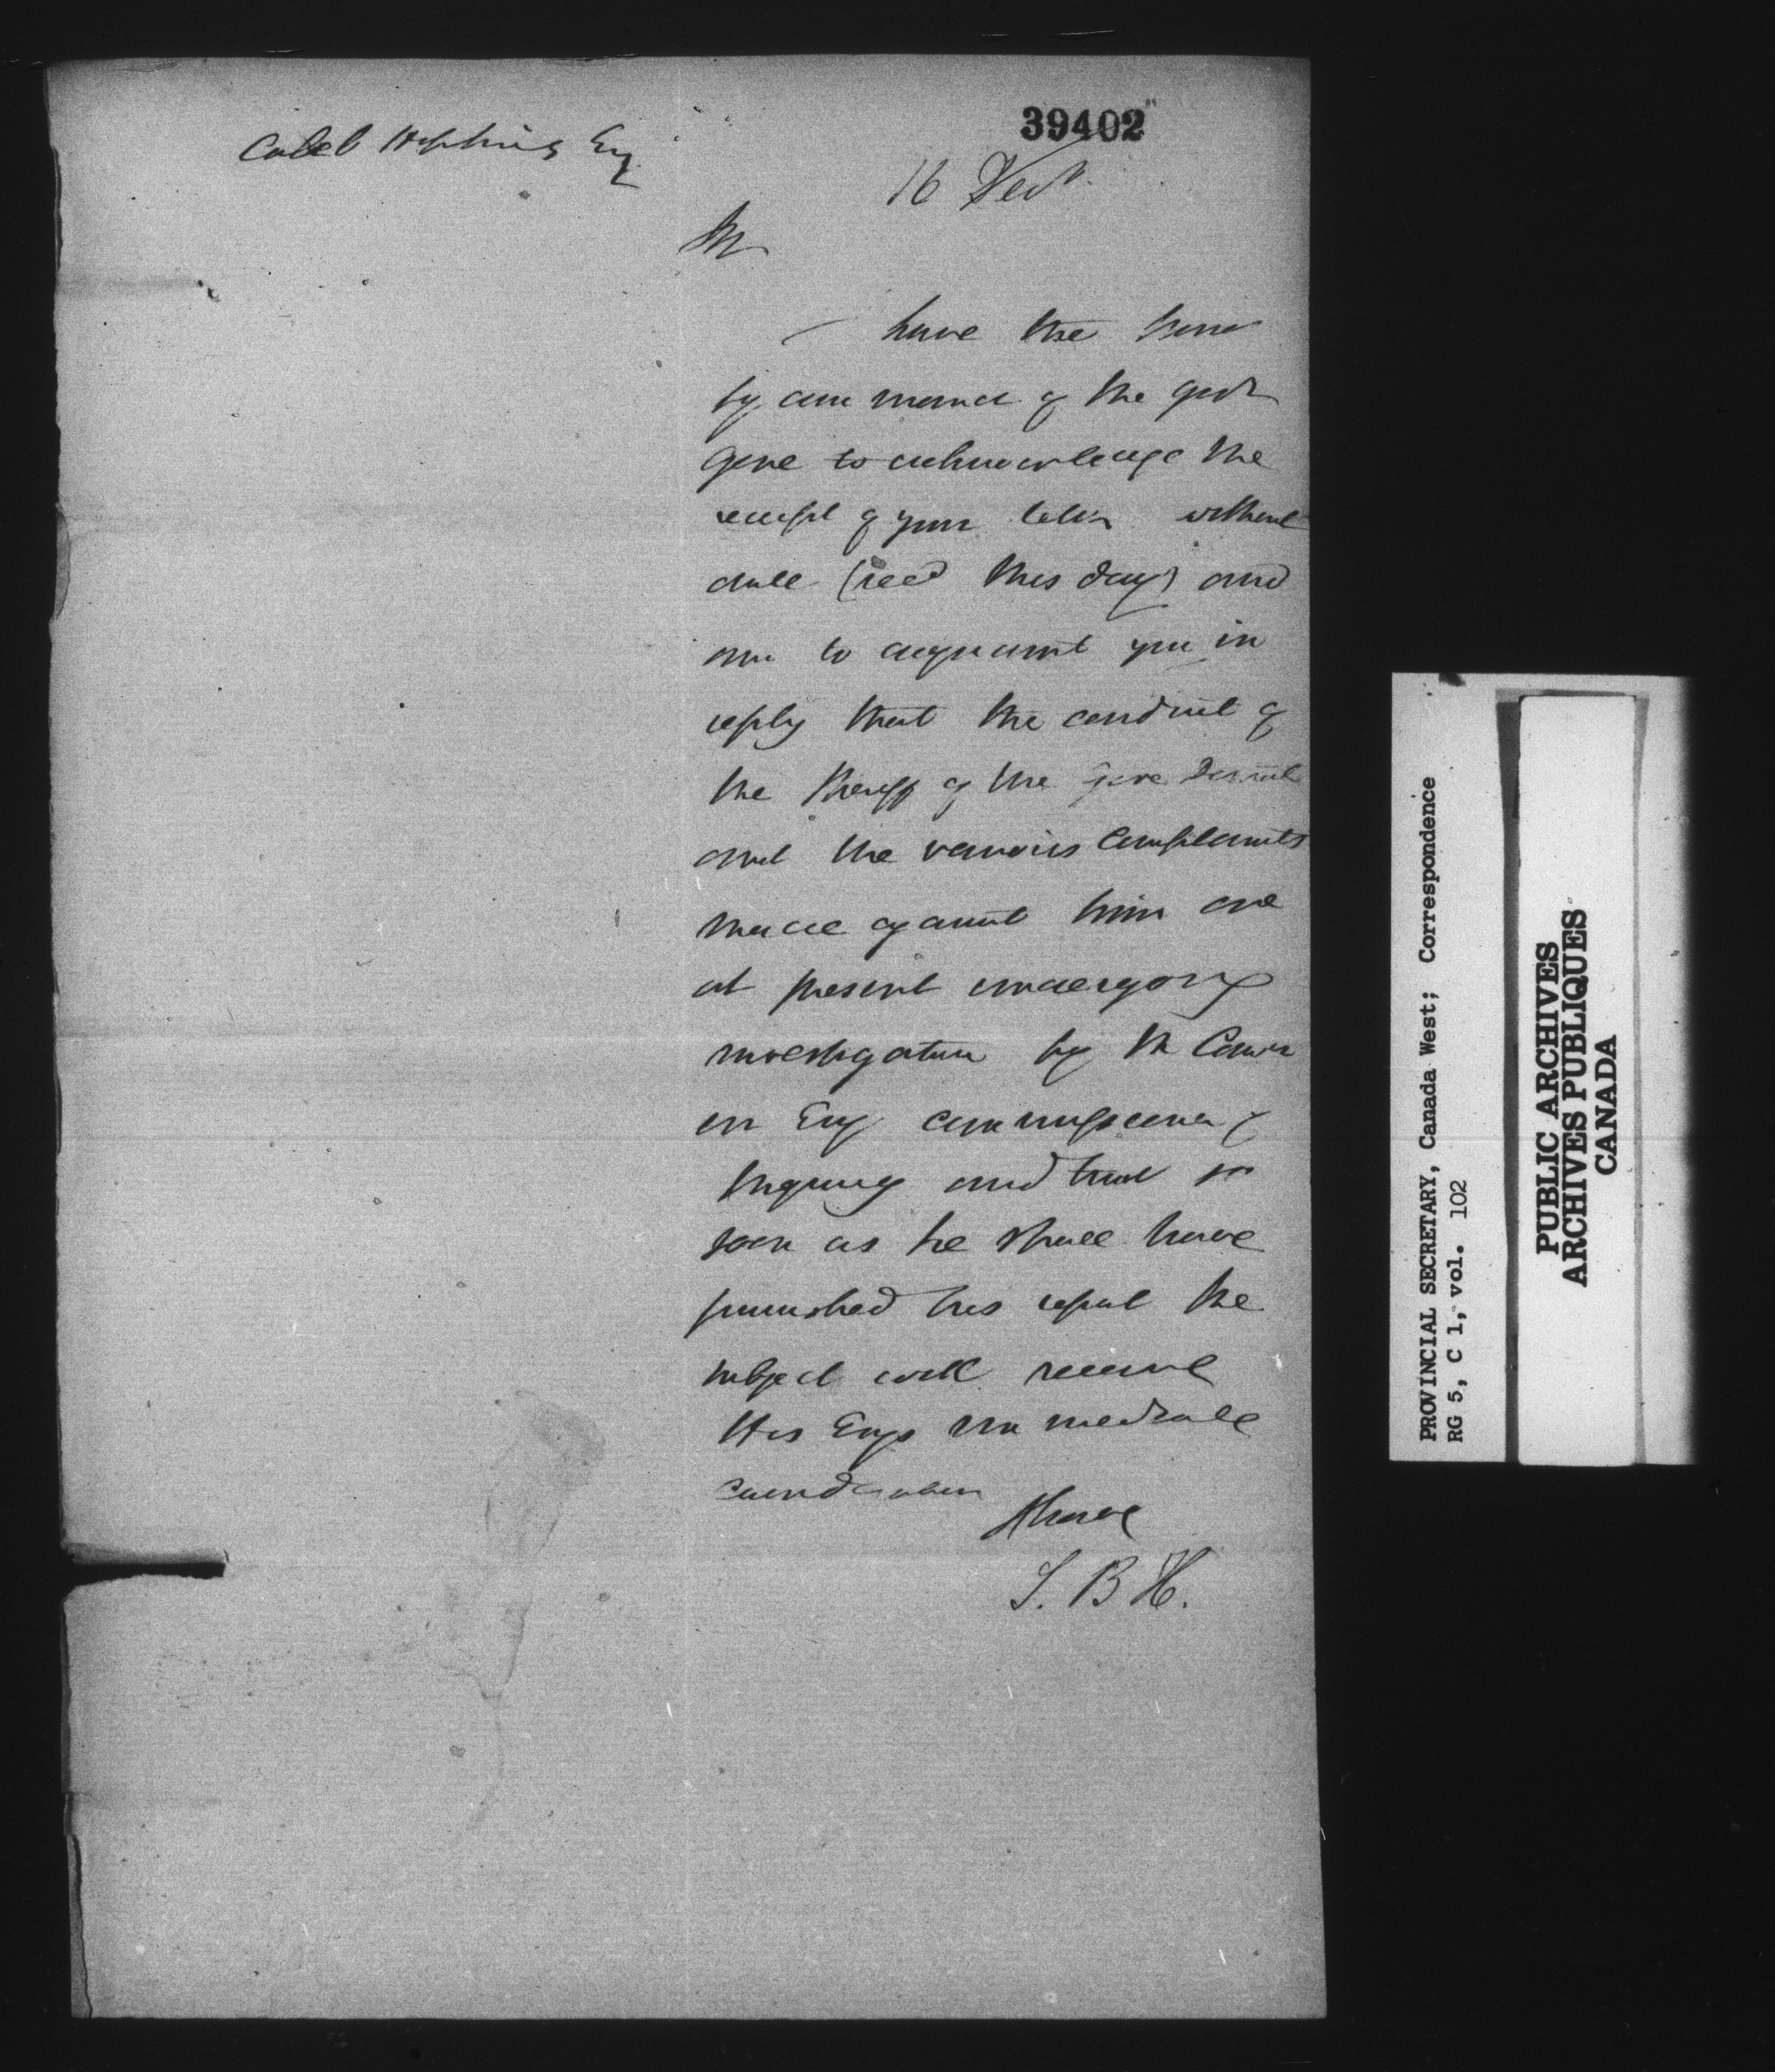 39402
Caleb Hopkins Esq
16 Decr.
Sir
I have the honor
by command of the Govr
Genl to acknowledge the
receipt of your letter without
date (recd this day) and
am to acquaint you in
reply that the conduct of
the Sheriff of the Gore District
and the various complaints
made against him are
at present undergoing
investigation by Mr
Esq Commissioner of
Inquiry and that so
soon as he shall have
furnished his report the
subject will receive
His Excys immediate
consideration
I have
S. B H.
PROVINCIAL SECRETARY, Canada West; Correspondence
RG 5, C 1, vol. 102
PUBLIC ARCHIVES
ARCHIVES PUBLIQUES
CANADA